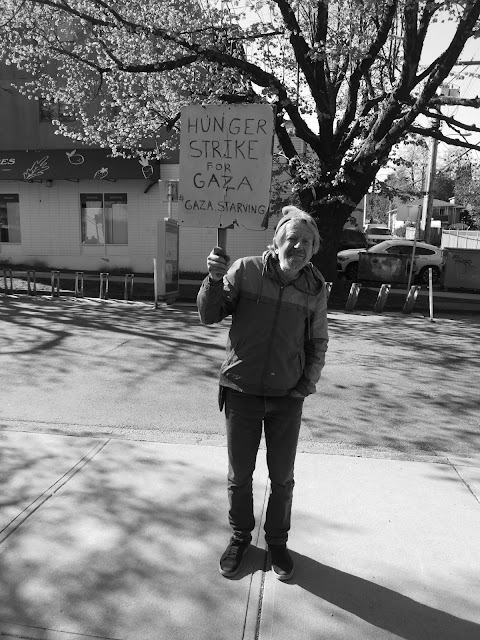 HUNGER
STRIKE
FOR
GAZA
GAZA STARVING
ES